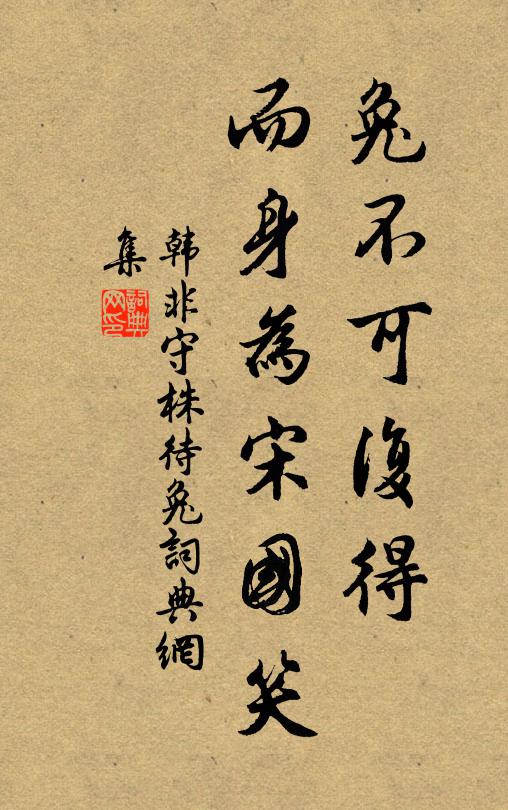 兔不可復得
而身為宋國笑
韩非守株待兔詞典網
集
詞典
网印